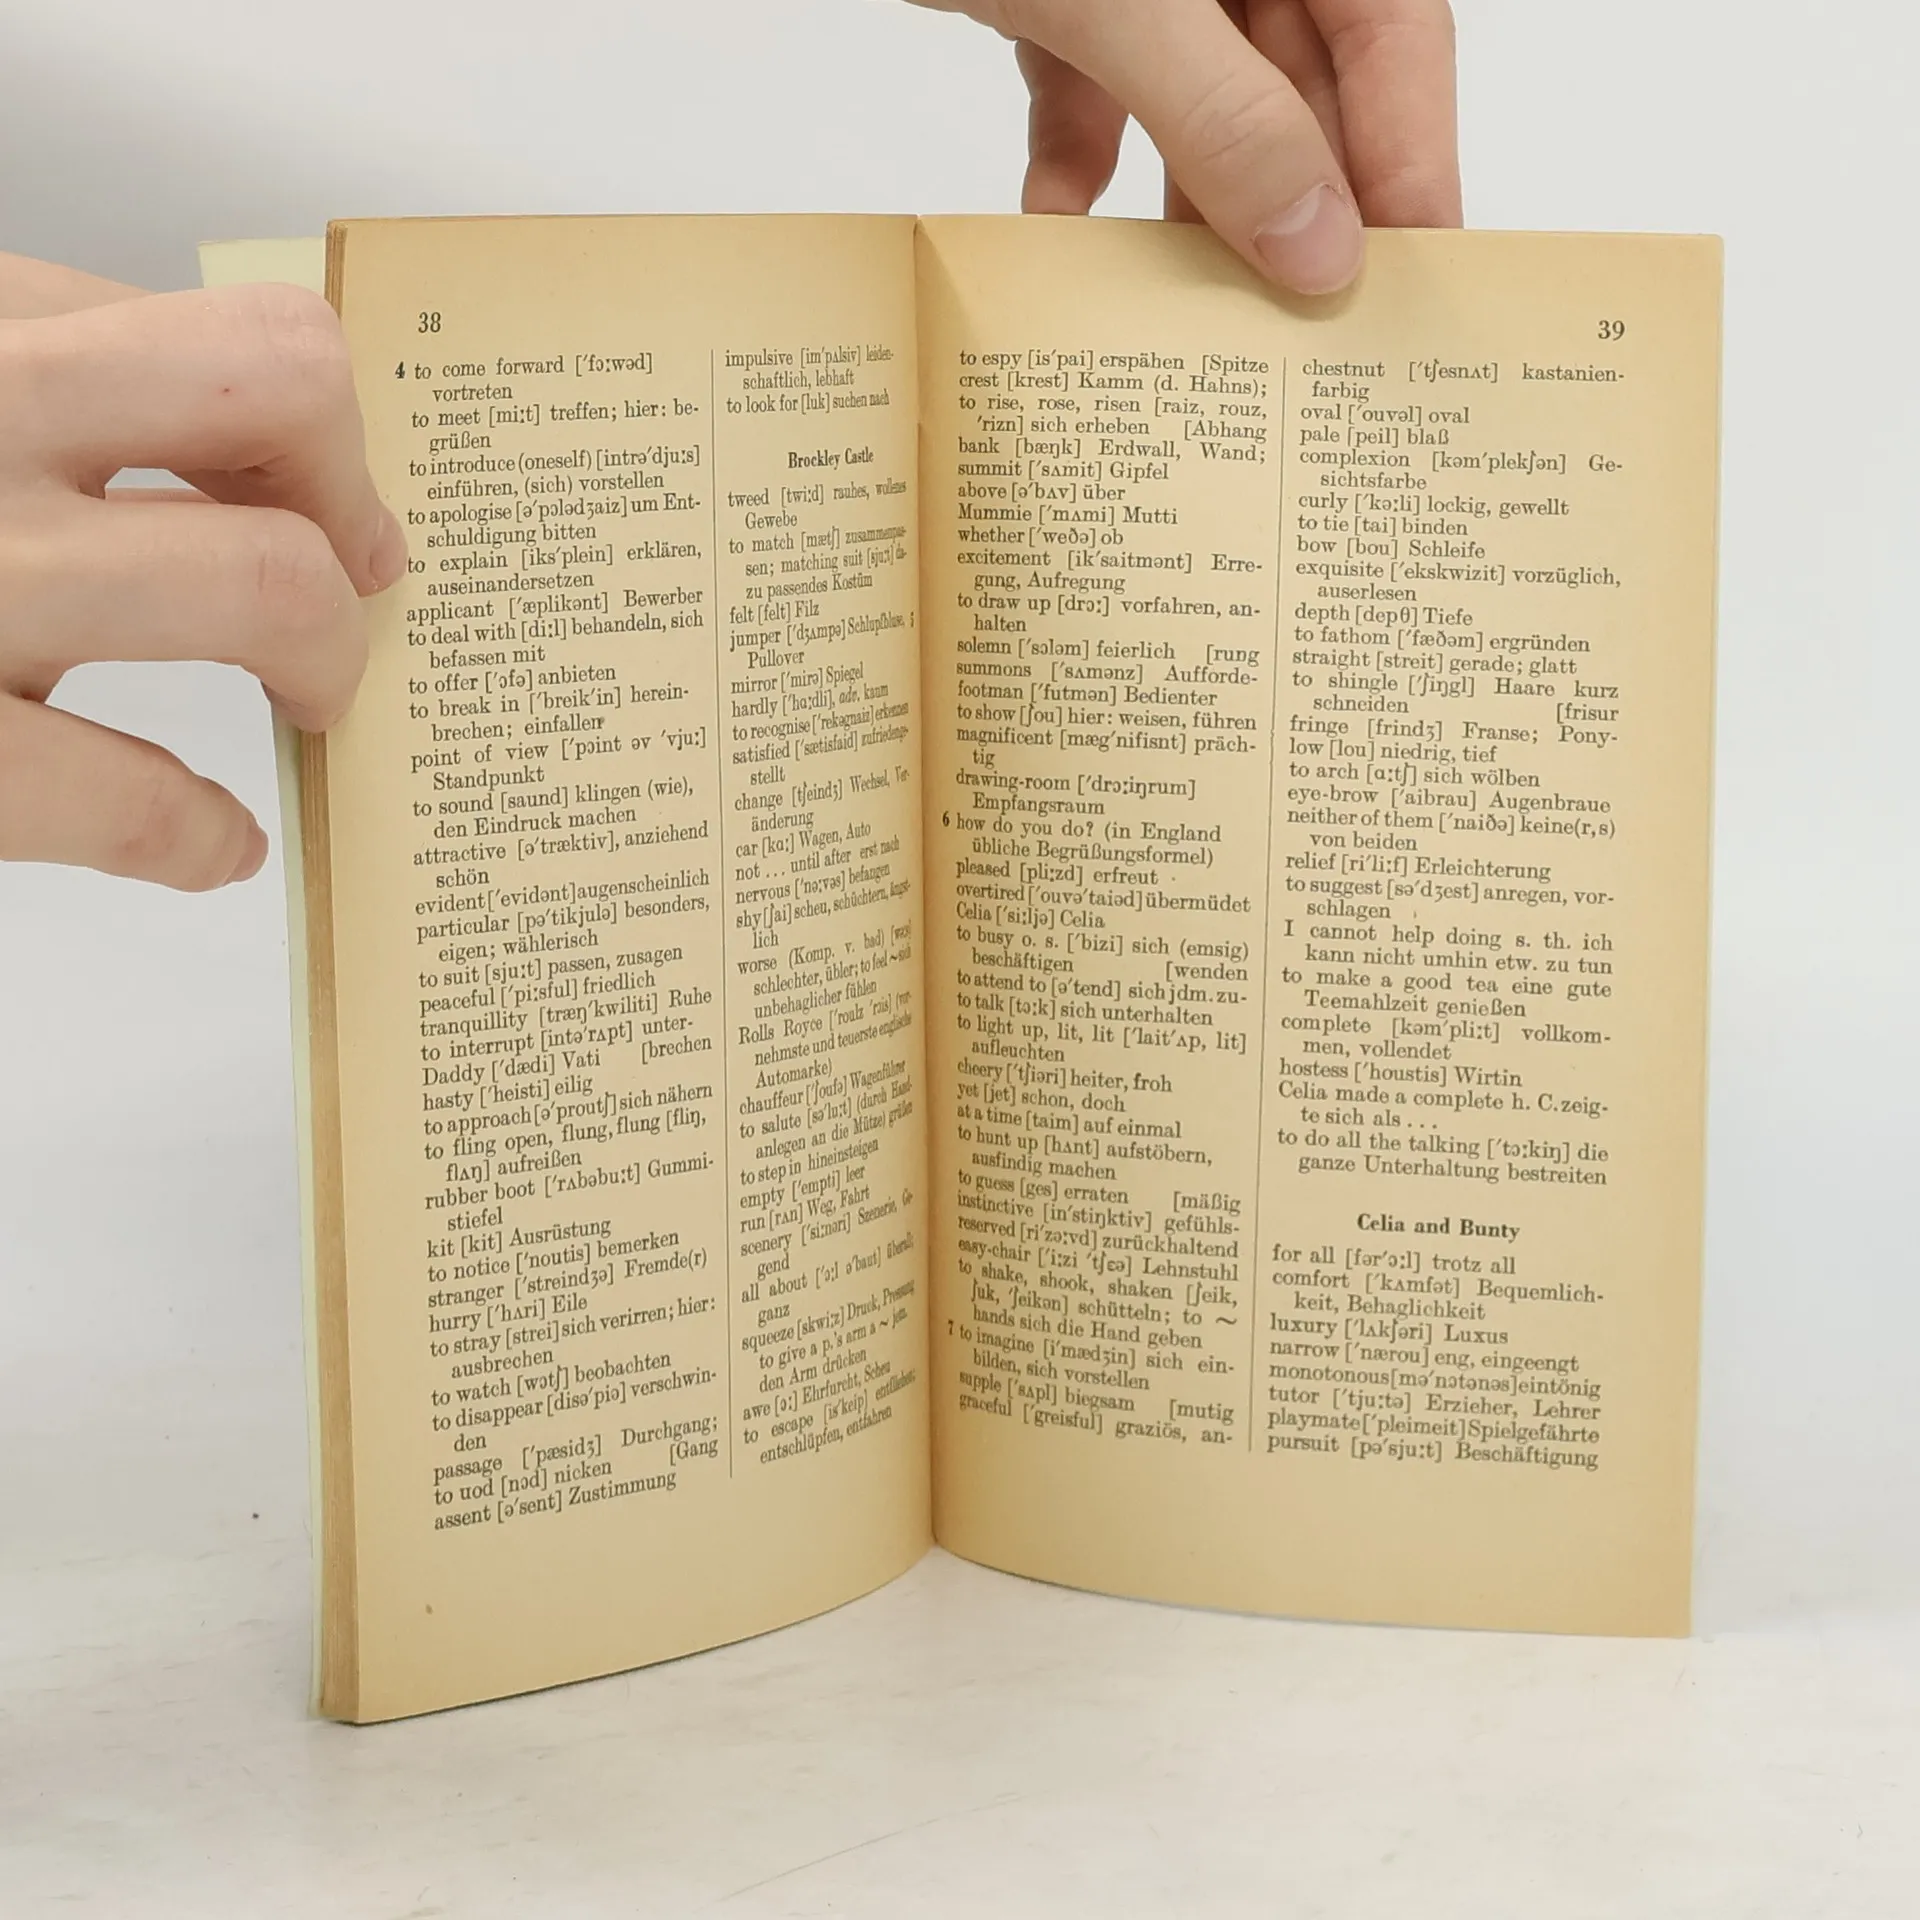 38
4 to come forward ['fɔːwəd]
vortreten
to meet [miːt] treffen; hier: be-
grüßen
to introduce (oneself) [intrə'djuːs]
einführen, (sich) vorstellen
to apologise [ə'pɔlədʒaiz] um Ent-
schuldigung bitten
to explain [iks'plein] erklären,
auseinandersetzen
applicant ['æplikənt] Bewerber
to deal with [diːl] behandeln, sich
befassen mit
to offer ['ɔfə] anbieten
to break in ['breik'in] herein-
brechen; einfallen
point of view ['pɔint əv 'vjuː]
Standpunkt
to sound [saund] klingen (wie),
den Eindruck machen
attractive [ə'træktiv], anziehend
schön
evident ['evidənt] augenscheinlich
particular [pə'tikjulə] besonders,
eigen; wählerisch
to suit [sjuːt] passen, zusagen
peaceful ['piːsful] friedlich
tranquillity [træŋ'kwiliti] Ruhe
to interrupt [intə'rʌpt] unter-
Daddy ['dædi] Vati [brechen
hasty ['heisti] eilig
to approach [ə'proutʃ] sich nähern
to fling open, flung, flung [fliŋ,
flʌŋ] aufreißen
rubber boot ['rʌbəbuːt] Gummi-
stiefel
kit [kit] Ausrüstung
to notice ['noutis] bemerken
stranger ['streindʒə] Fremde(r)
hurry ['hʌri] Eile
to stray [strei] sich verirren; hier:
ausbrechen
to watch [wɔtʃ] beobachten
to disappear [disə'piə] verschwin-
den
passage ['pæsidʒ] Durchgang;
to uod [nɔd] nicken [Gang
assent [ə'sent] Zustimmung
impulsive [im'pʌlsiv] leiden-
schaftlich, lebhaft
to look for [luk] suchen nach
Brockley Castle
tweed [twiːd] rauhes, wollenes
Gewebe
to match [mætʃ] zusammenpas-
sen; matching suit [sjuːt] da-
zu passendes Kostüm
felt [felt] Filz
jumper ['dʒʌmpə] Schlupfbluse, 5
Pullover
mirror ['mirə] Spiegel
hardly ['hɑːdli], adv. kaum
to recognise ['rekəgnaiz] erkennen
satisfied ['sætisfaid] zufriedenge-
stellt
change [tʃeindʒ] Wechsel, Ver-
änderung
car [kɑː] Wagen, Auto
not ... until after erst nach
nervous ['nəːvəs] befangen
shy [ʃai] scheu, schüchtern, ängst-
lich
worse (Komp. v. bad) [wəːs]
schlechter, übler; to feel ~ sich
unbehaglicher fühlen
Rolls Royce ['roulz 'rɔis] (vor-
nehmste und teuerste englische
Automarke)
chauffeur ['ʃoufə] Wagenführer
to salute [sə'luːt] (durch Hand-
anlegen an die Mütze) grüßen
to step in hineinsteigen
empty ['empti] leer
run [rʌn] Weg, Fahrt
scenery ['siːnəri] Szenerie, Ge-
gend
all about ['ɔːl ə'baut] überall;
ganz
squeeze [skwiːz] Druck, Pressung
to give a p.'s arm a ~ jem.
den Arm drücken
awe [ɔː] Ehrfurcht, Scheu
to escape [is'keip] entfliehen;
entschlüpfen, entfahren
39
to espy [is'pai] erspähen [Spitze
crest [krest] Kamm (d. Hahns);
to rise, rose, risen [raiz, rouz,
'rizn] sich erheben [Abhang
bank [bæŋk] Erdwall, Wand;
summit ['sʌmit] Gipfel
above [ə'bʌv] über
Mummie ['mʌmi] Mutti
whether ['weðə] ob
excitement [ik'saitmənt] Erre-
gung, Aufregung
to draw up [drɔː] vorfahren, an-
halten
solemn ['sɔləm] feierlich [rung
summons ['sʌmənz] Aufforde-
footman ['futmən] Bedienter
to show [ʃou] hier: weisen, führen
magnificent [mæg'nifisnt] präch-
tig
drawing-room ['drɔːiŋrum]
Empfangsraum
6 how do you do? (in England
übliche Begrüßungsformel)
pleased [pliːzd] erfreut
overtired ['ouvə'taiəd] übermüdet
Celia ['siːljə] Celia
to busy o. s. ['bizi] sich (emsig)
beschäftigen [wenden
to attend to [ə'tend] sich jdm. zu-
to talk [tɔːk] sich unterhalten
to light up, lit, lit ['lait'ʌp, lit]
aufleuchten
cheery ['tʃiəri] heiter, froh
yet [jet] schon, doch
at a time [taim] auf einmal
to hunt up [hʌnt] aufstöbern,
ausfindig machen
to guess [ges] erraten [mäßig
instinctive [in'stiŋktiv] gefühls-
reserved [ri'zəːvd] zurückhaltend
easy-chair ['iːzi 'tʃɛə] Lehnstuhl
to shake, shook, shaken [ʃeik,
ʃuk, 'ʃeikən] schütteln; to ~
hands sich die Hand geben
7 to imagine [i'mædʒin] sich ein-
bilden, sich vorstellen
supple ['sʌpl] biegsam [mutig
graceful ['greisful] graziös, an-
chestnut ['tʃesnʌt] kastanien-
farbig
oval ['ouvəl] oval
pale [peil] blaß
complexion [kəm'plekʃən] Ge-
sichtsfarbe
curly ['kəːli] lockig, gewellt
to tie [tai] binden
bow [bou] Schleife
exquisite ['ekskwizit] vorzüglich,
auserlesen
depth [depθ] Tiefe
to fathom ['fæðəm] ergründen
straight [streit] gerade; glatt
to shingle ['ʃiŋgl] Haare kurz
schneiden [frisur
fringe [frindʒ] Franse; Pony-
low [lou] niedrig, tief
to arch [ɑːtʃ] sich wölben
eye-brow ['aibrau] Augenbraue
neither of them ['naiðə] keine(r, s)
von beiden
relief [ri'liːf] Erleichterung
to suggest [sə'dʒest] anregen, vor-
schlagen
I cannot help doing s. th. ich
kann nicht umhin etw. zu tun
to make a good tea eine gute
Teemahlzeit genießen
complete [kəm'pliːt] vollkom-
men, vollendet
hostess ['houstis] Wirtin
Celia made a complete h. C. zeig-
te sich als ...
to do all the talking ['tɔːkiŋ] die
ganze Unterhaltung bestreiten
Celia and Bunty
for all [fər'ɔːl] trotz all
comfort ['kʌmfət] Bequemlich-
keit, Behaglichkeit
luxury ['lʌkʃəri] Luxus
narrow ['nærou] eng, eingeengt
monotonous [mə'nɔtənəs] eintönig
tutor ['tjuːtə] Erzieher, Lehrer
playmate ['pleimeit] Spielgefährte
pursuit [pə'sjuːt] Beschäftigung